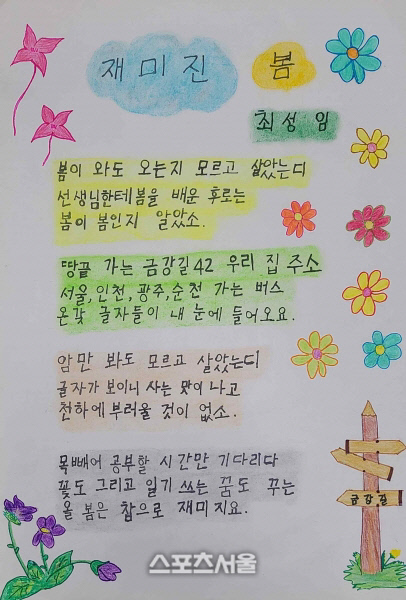 재미진 봄
최성임
봄이 와도 오는지 모르고 살았는디
선생님한테봄을 배운 후로는
봄이 봄인지 알았소.
땅끝 가는 금강길42 우리 집 주소
서울,인천,광주,순천 가는 버스
온갖 글자들이 내 눈에 들어오요.
암만 봐도 모르고 살았는디
글자가 보이니 사는 맛이 나고
천하에 부러울 것이 없소.
목빼어 공부할 시간만 기다리다
꽃도 그리고 일기 쓰는 꿈도 꾸는
올 봄은 참으로 재미지요.
금강길
스포츠서울